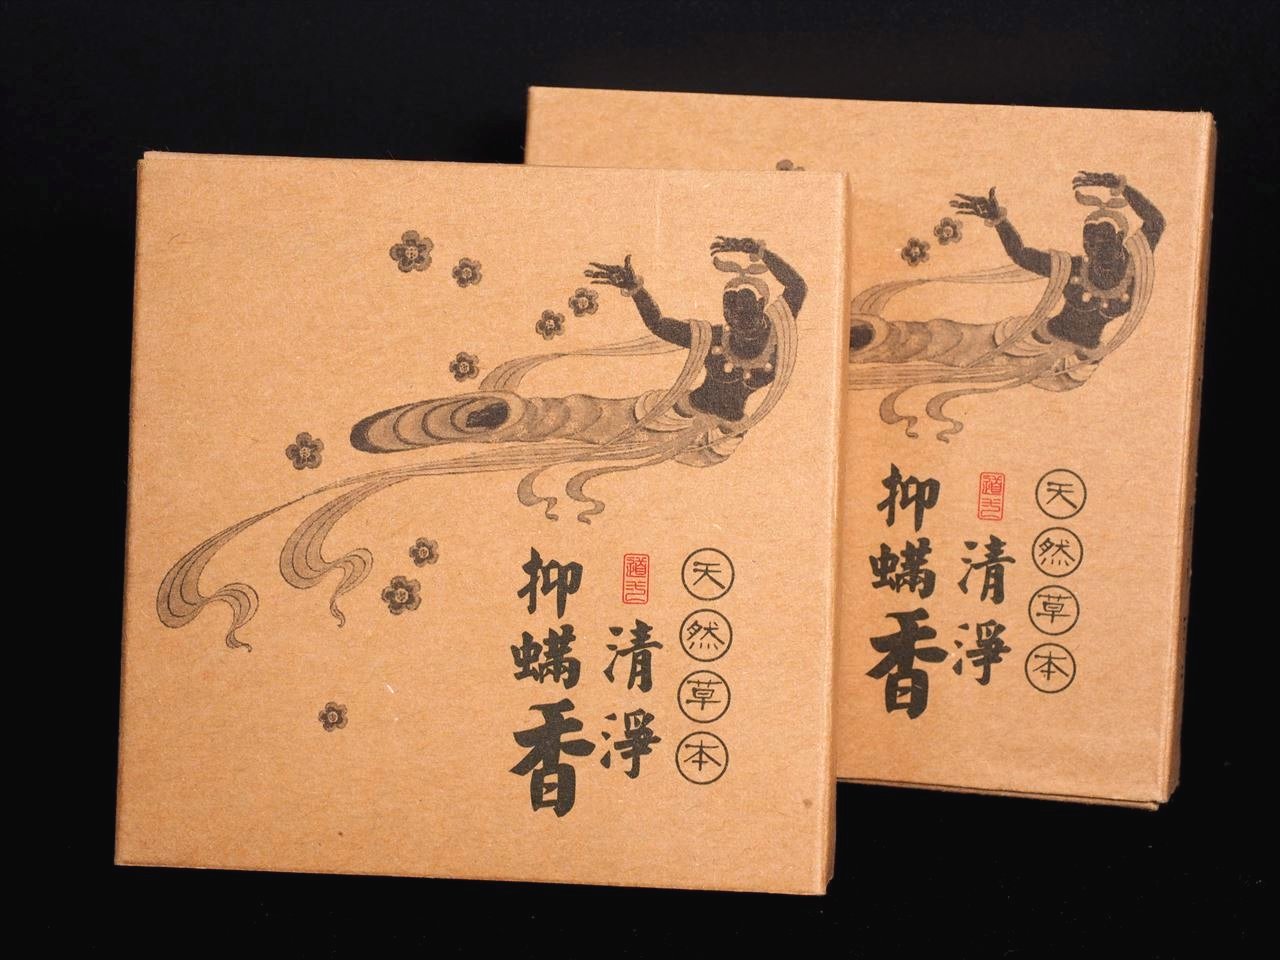 天然草本
清淨
抑螨香
天然草本
清淨
抑螨香